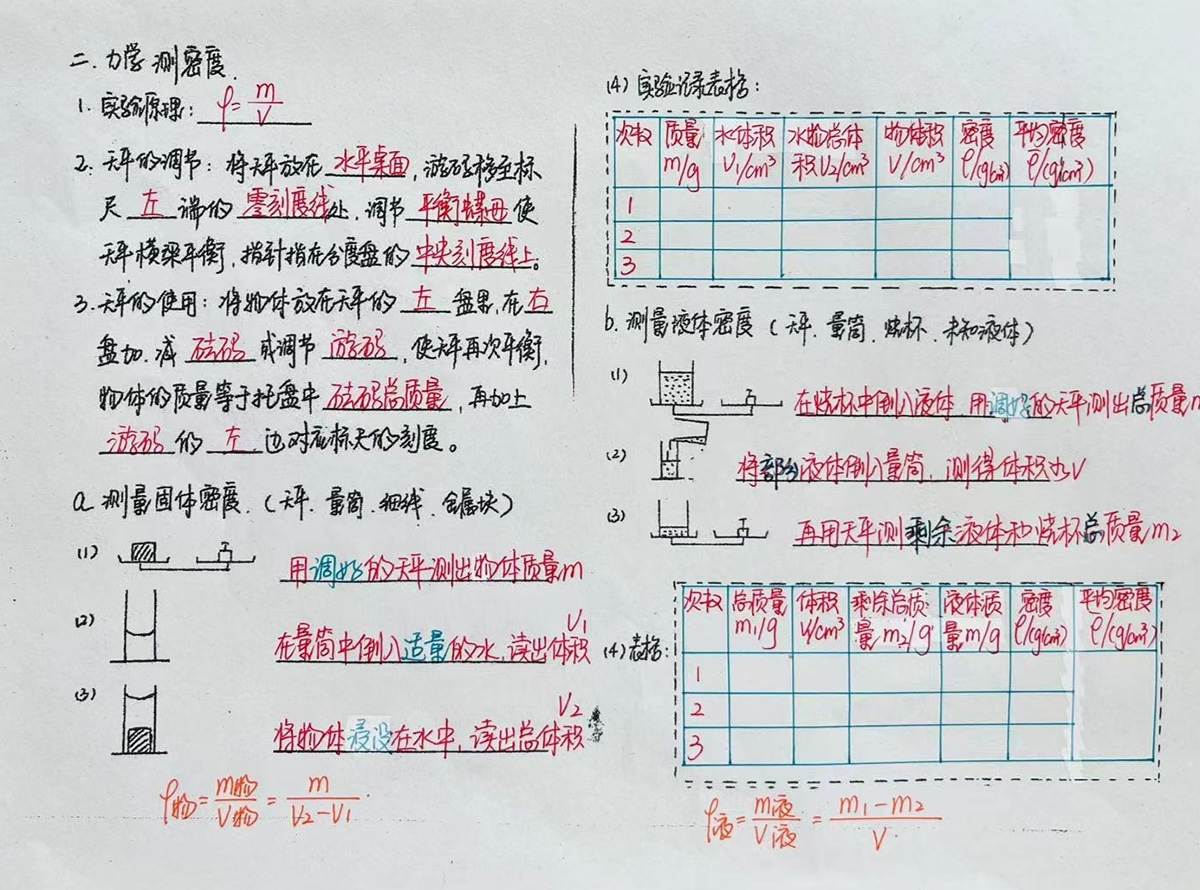 二.力学 测密度.
1. 实验原理: ρ=m/V
2. 天平的调节: 将天平放在 水平桌面, 游码移至标
尺 左 端的 零刻度线处, 调节 平衡螺母 使
天平横梁平衡, 指针指在分度盘的 中央刻度线上。
3. 天平的使用: 将物体放在天平的 左 盘里, 在 右
盘加.减 砝码 或调节 游码, 使天平再次平衡,
物体的质量等于托盘中 砝码总质量, 再加上
游码 的 左 边对应标尺的刻度。
a. 测量固体密度. (天平. 量筒. 细线. 金属块)
(1) 用调好的天平测出物体质量m
(2) 在量筒中倒入适量的水, 读出体积V1
(3) 将物体浸没在水中, 读出总体积V2
ρ物=m物/V物=m/(V2-V1)
(4) 实验记录表格:
次数 质量m/g 水体积V1/cm³ 水物总体积V2/cm³ 物体积V/cm³ 密度ρ/(g/cm³) 平均密度ρ/(g/cm³)
1
2
3
b. 测量液体密度 (天平. 量筒. 烧杯. 未知液体)
(1) 在烧杯中倒入液体, 用调好的天平测出总质量m
(2) 将部分液体倒入量筒, 测得体积为V
(3) 再用天平测剩余液体和烧杯总质量m2
(4) 表格:
次数 总质量m1/g 体积V/cm³ 剩余总质量m2/g 液体质量m/g 密度ρ/(g/cm³) 平均密度ρ/(g/cm³)
1
2
3
ρ液=m液/V液=(m1-m2)/V